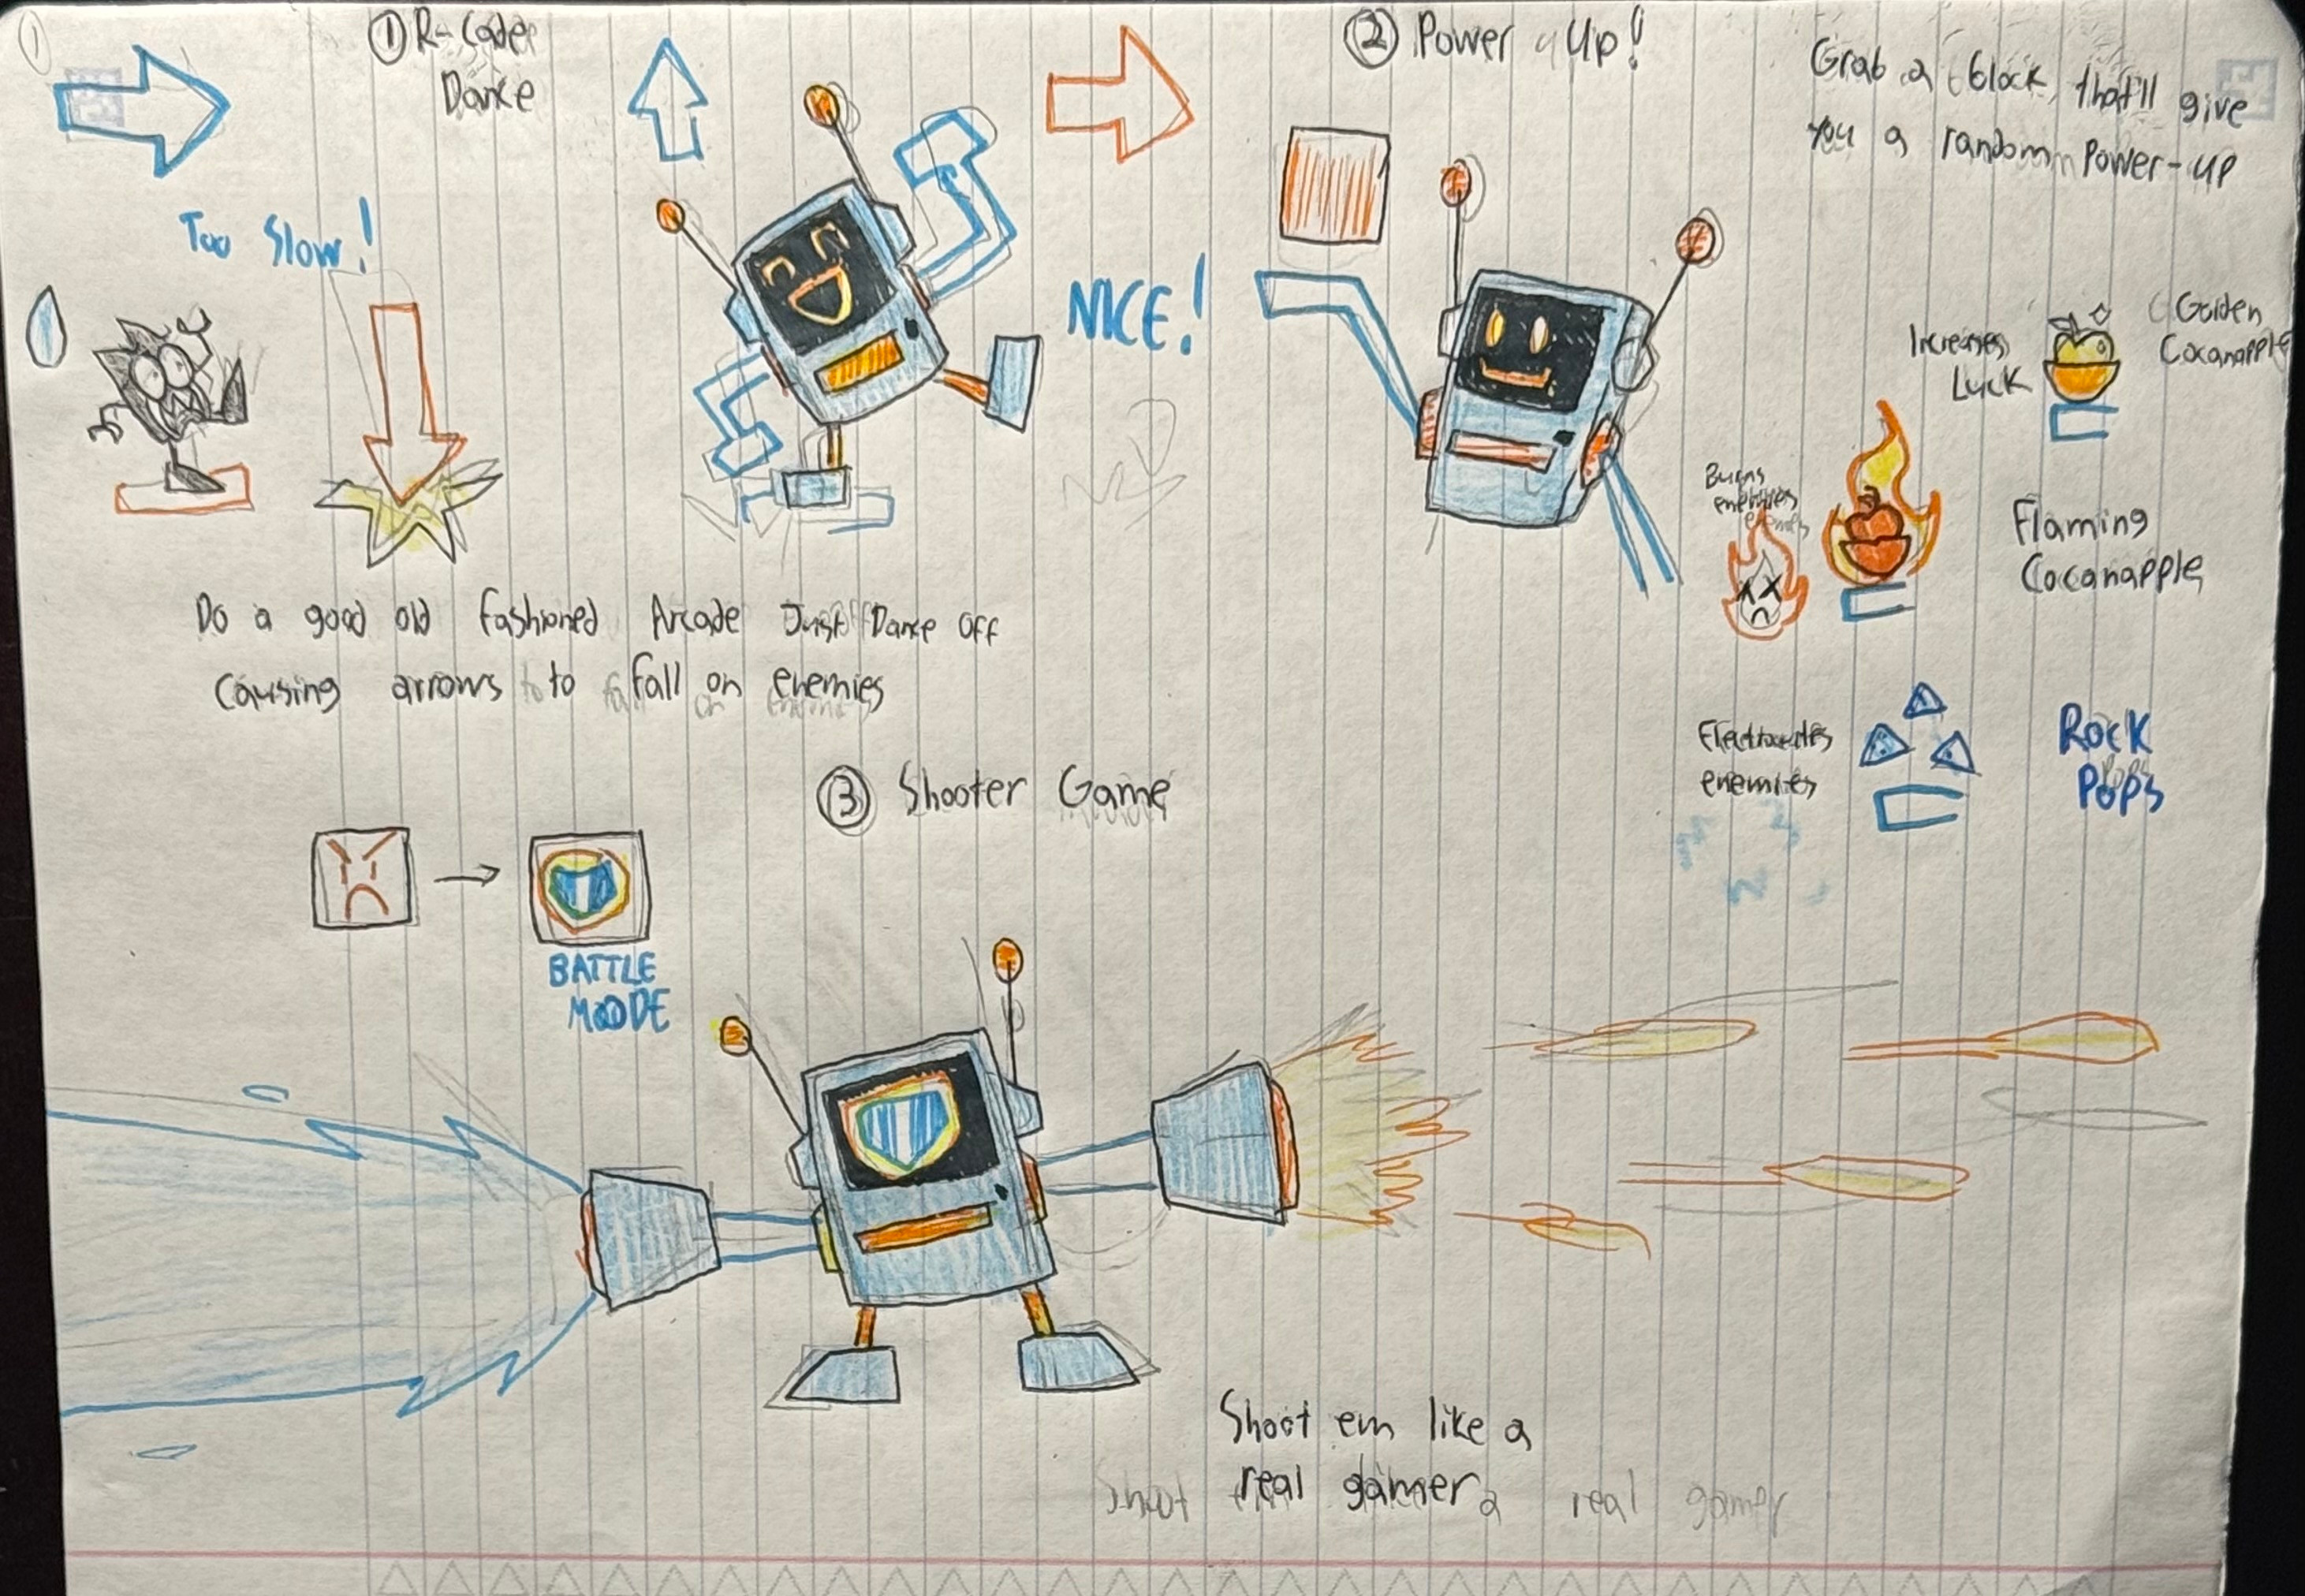 ① R-Cade
Dance
Too Slow!
NICE!
Do a good old fashioned Arcade Just Dance off
causing arrows to fall on enemies
② Power up!
Grab a block, that'll give
you a random Power-up
Increases
Luck
Golden
Cocanapple
Burns
enemies
Flaming
Cocanapple
Electrocutes
enemies
Rock
Pops
③ Shooter Game
BATTLE
MODE
Shoot em like a
real gamer